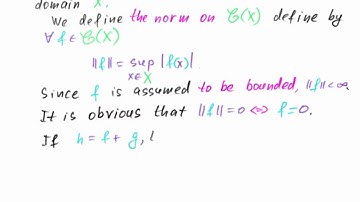 domain X.
We define the norm on 𝒞(X) define by
∀ f ∈ 𝒞(X)
||f|| = sup |f(x)|.
x∈X
Since f is assumed to be bounded, ||f||<∞.
It is obvious that ||f||=0 <=> f=0.
If h = f + g,